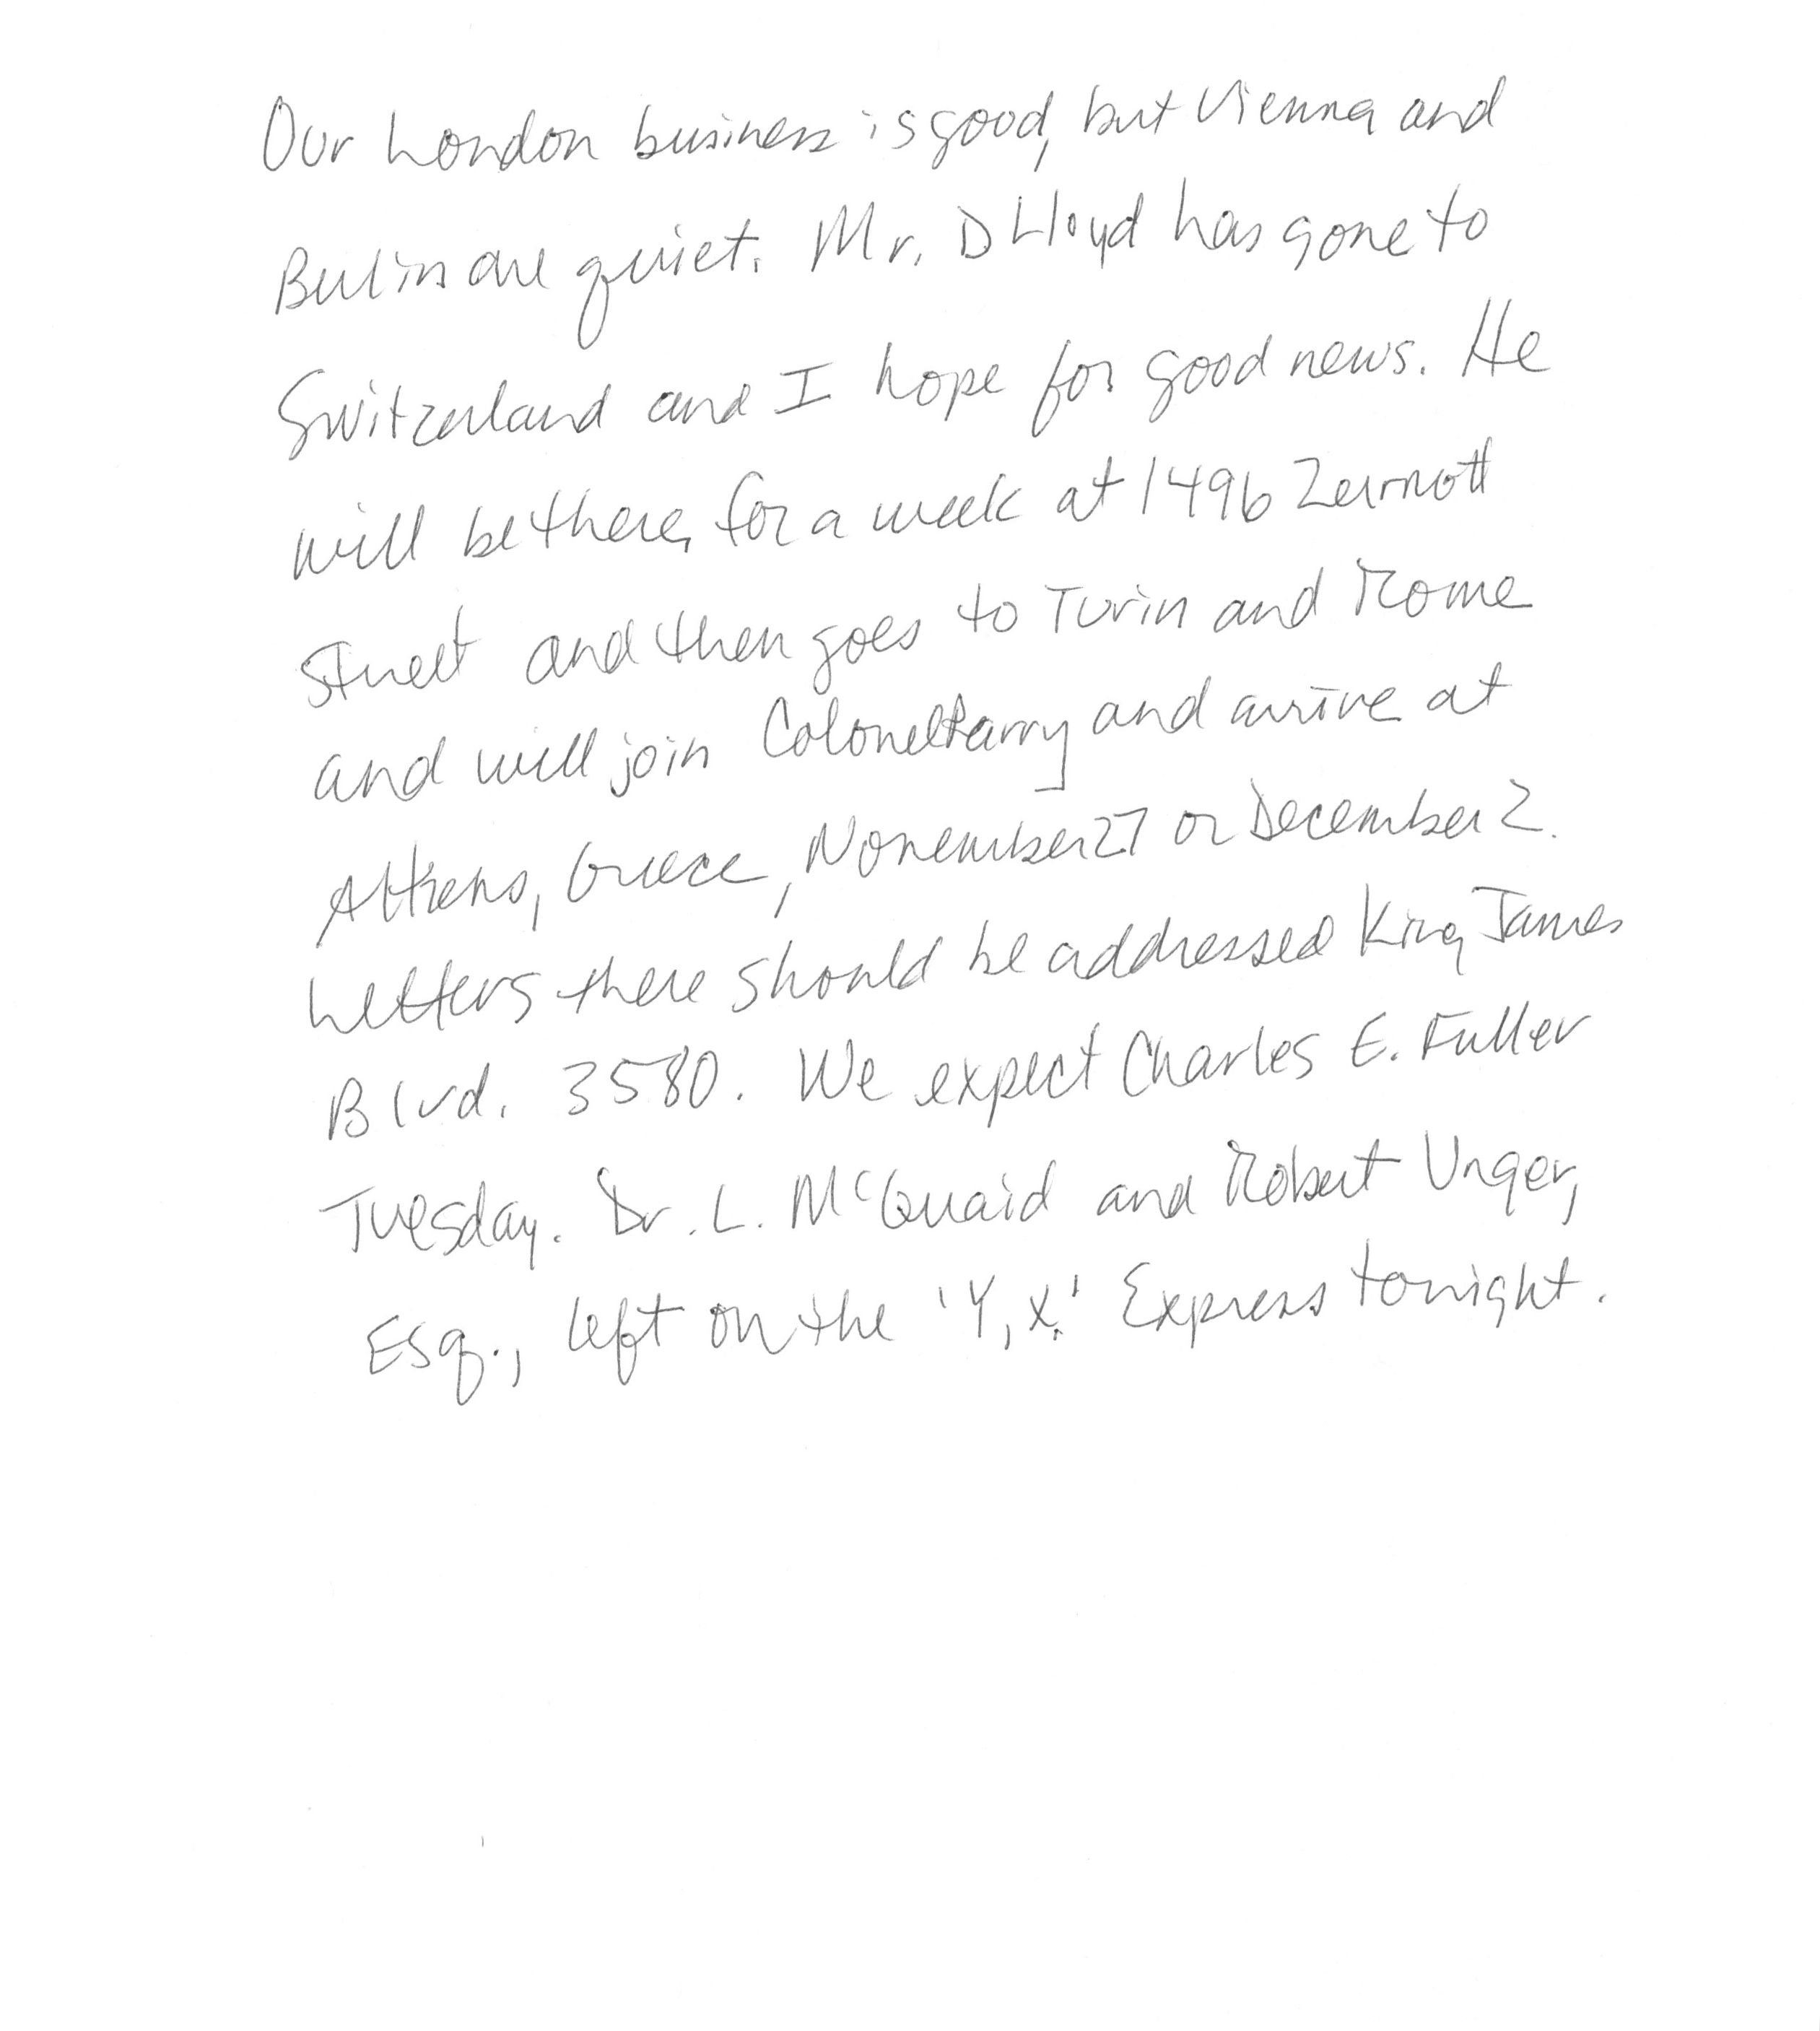 Our London business is good, but Vienna and
Berlin are quiet. Mr. D Lloyd has gone to
Switzerland and I hope for good news. He
will be there, for a week at 1496 Zermott
street and then goes to Turin and Rome
and will join Colonel Parry and arrive at
Athens, Greece, November 27 or December 2.
Letters there should be addressed King James
Blvd. 3580. We expect Charles E. Fuller
Tuesday. Dr. L. McQuaid and Robert Unger,
Esq., left on the 'Y, X.' Express tonight.